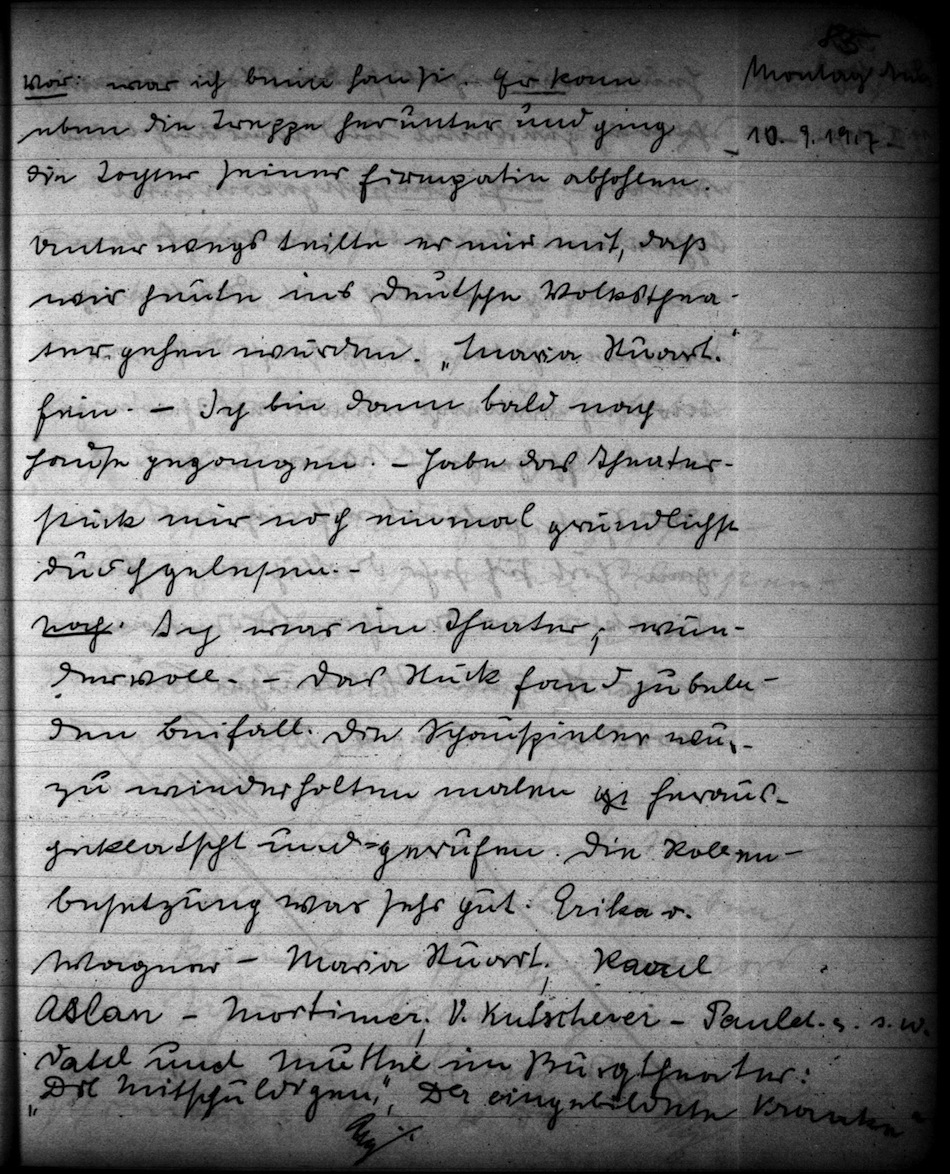 85.
Montag, den
10. 9. 1917.
Vor: war ich beim Hansi. Er kam
eben die Treppe herunter und ging
die Tochter seiner Firmpatin abhohlen.
Unterwegs teilte er mir mit, daß
wir heute ins Deutsche Volksthea-
ter gehen würden. „Maria Stuart."
Fein. – Ich bin dann bald nach
Hause gegangen. – Habe das Theater-
stück mir noch einmal gründlichst
durchgelesen. –
Nach. Ich war im Theater; wun-
dervoll. – Das Stück fand jubeln-
den Beifall. Die Schauspieler wur-
zu wiederholten malen heraus-
geklatscht und =gerufen. Die Rollen-
besetzung war sehr gut. Erika v.
Wagner – Maria Stuart, Raoul
Aslan – Mortimer, V. Kutschera – Pauled. u. s. w.
Vater und Mutter im Burgtheater:
„Die Mitschuldigen", Der eingebildete Kranke"